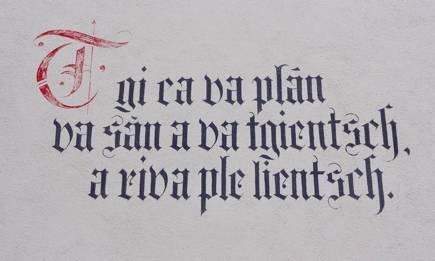 Tgi ca va plān
va sān a va tgientsch,
a riva ple līentsch.